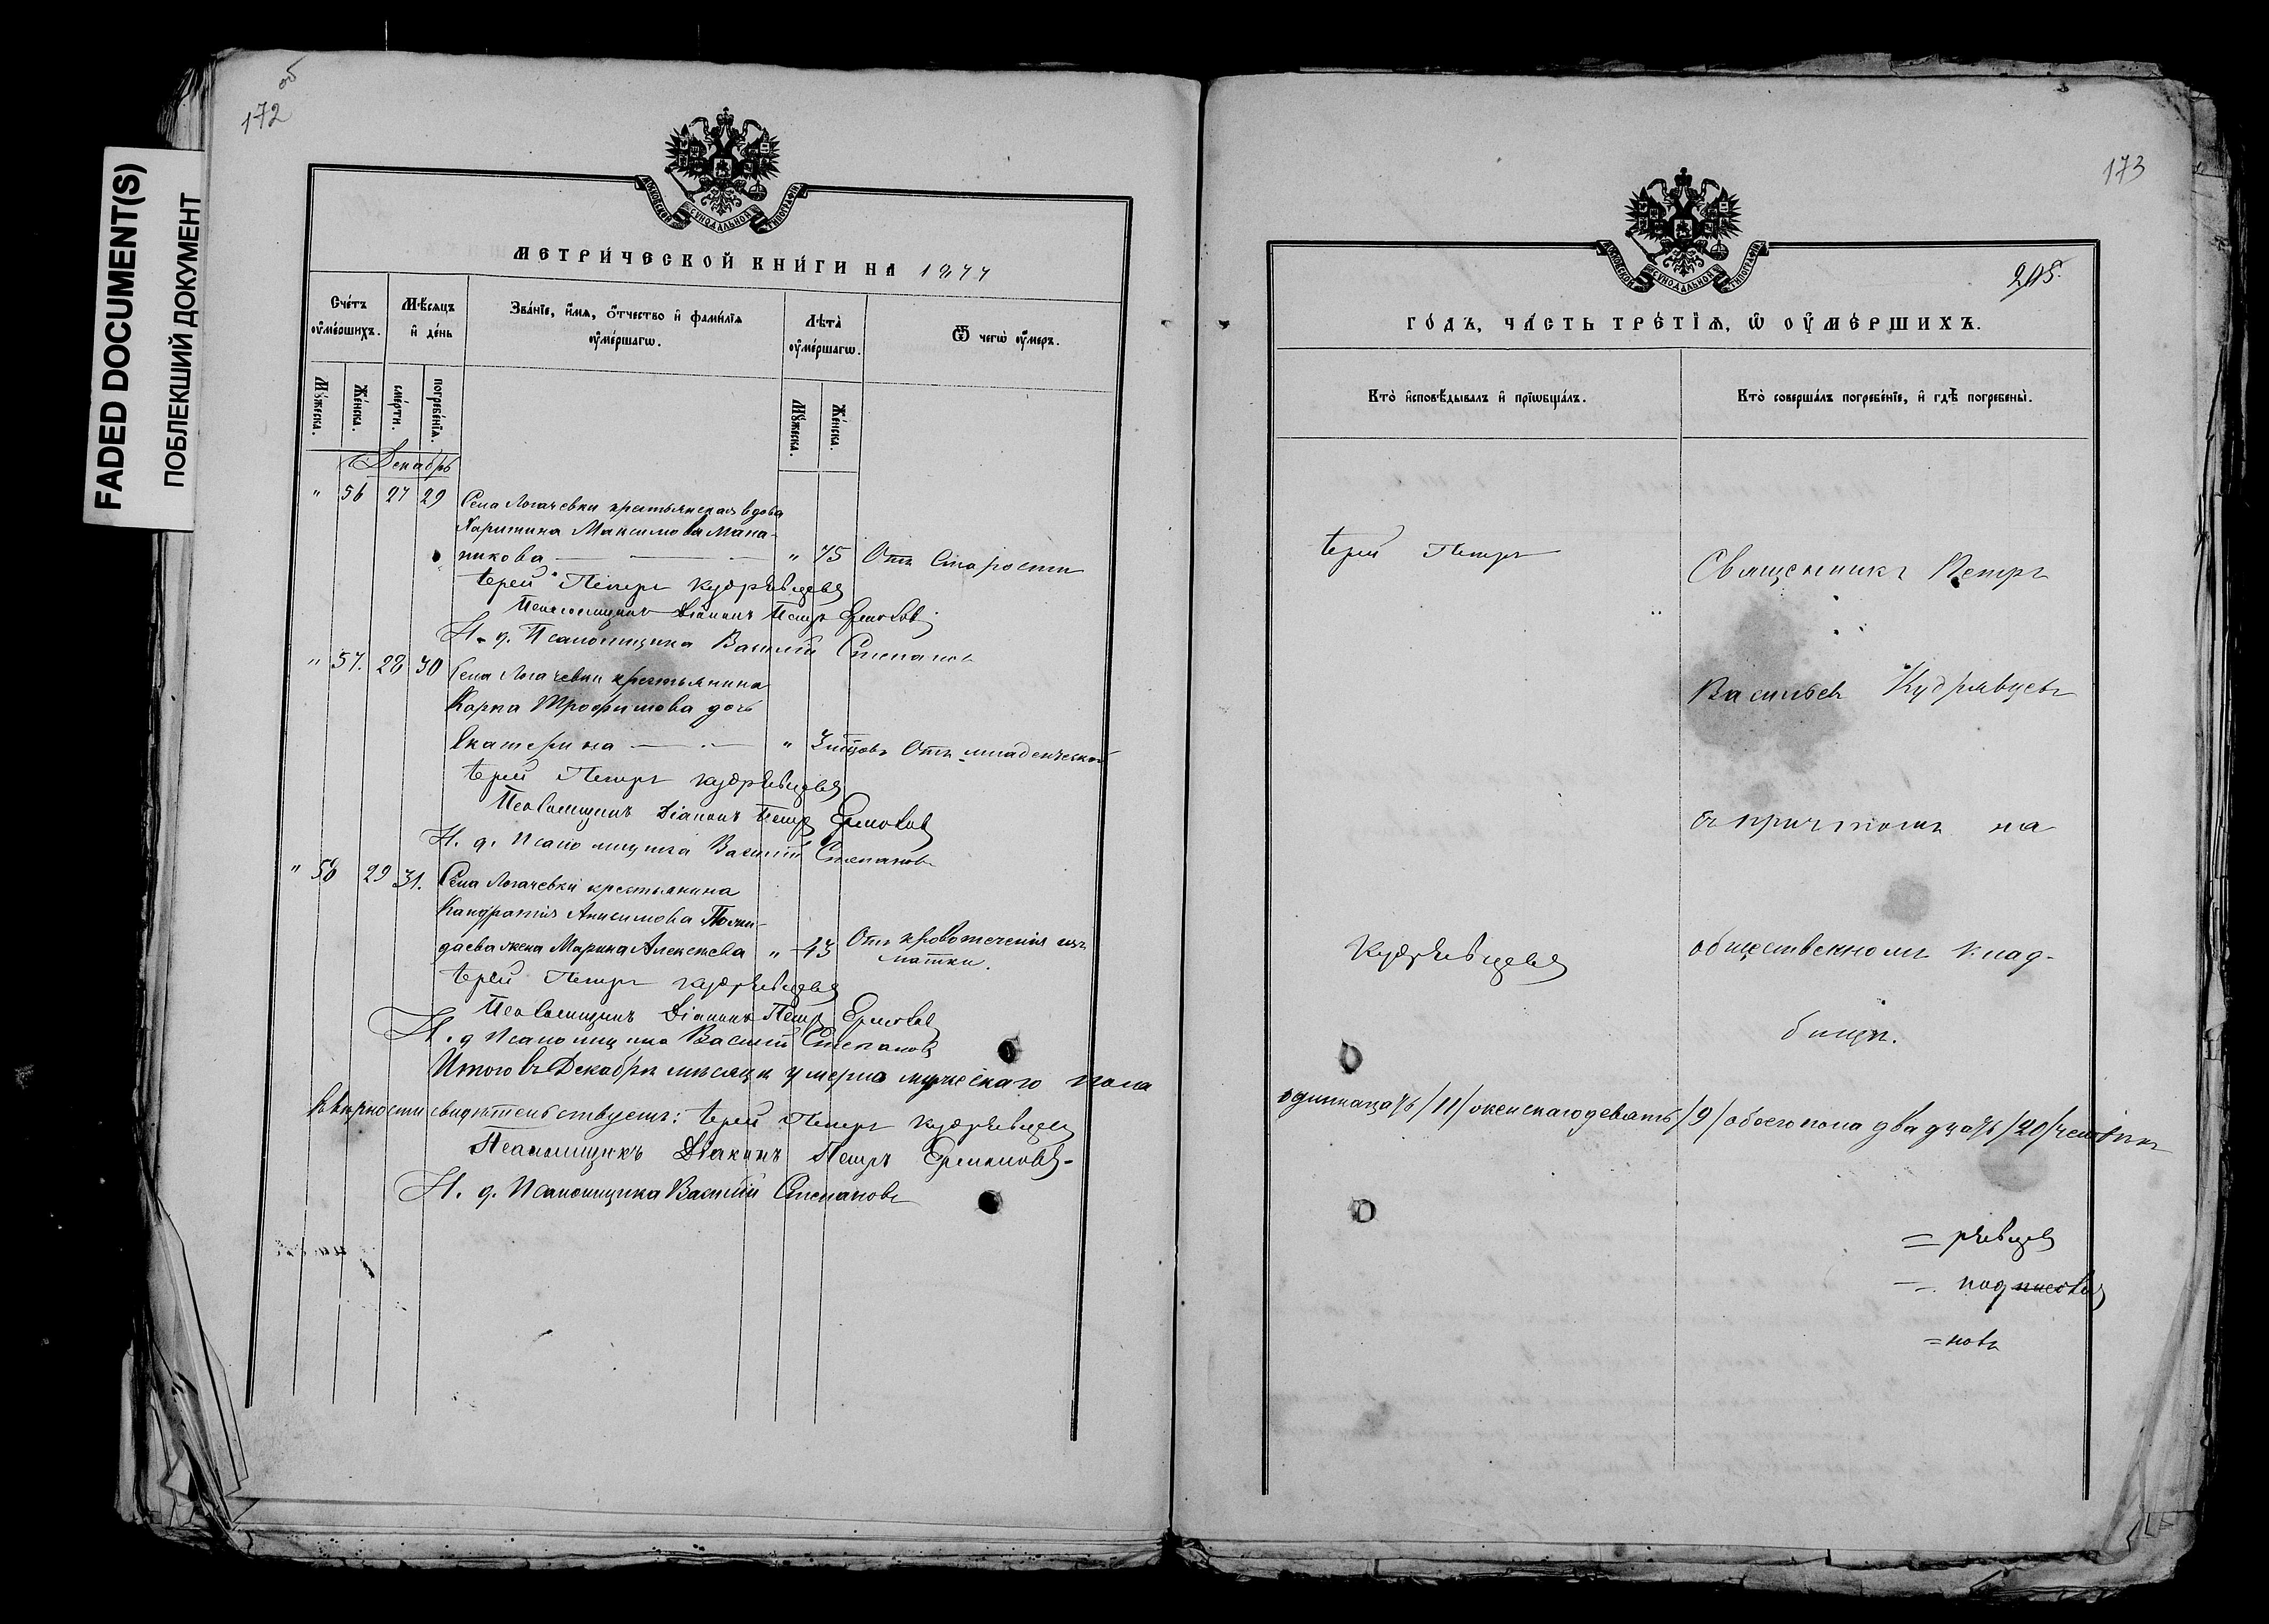 FADED DOCUMENT(S)
ПОБЛЕКШИЙ ДОКУМЕНТ
об
172
МОСКОВСКОЙ СѴНОДАЛЬНОЙ ТИПОГРАФІИ
МЕТРИ́ЧЕСКОЙ КНИ́ГИ НА 1877
Сче́тъ оу҆ме́ршихъ.
Мѣ́сяцъ и҆ де́нь
Зва́нїе, и҆́мѧ, ѻ҆́тчество и҆ фами́лїѧ оу҆ме́ршагѡ.
Лѣ́та оу҆ме́ршагѡ.
Ѿ чегѡ̀ оу҆́меръ.
Мꙋ́жеска.
Же́нска.
сме́рти.
погребе́нїѧ.
Мꙋ́жеска.
Же́нска.
Декабрь
" 56 27 29 Села Логачевки крестьянская вдова
Харитина Максимова Мана-
никова — " 75 Отъ старости
Іерей Петръ Кудрявцевъ
Псаломщикъ Діаконъ Петръ Ермолов
И. д. Псаломщика Василій Степановъ
" 57. 28 30 Села Логачевки крестьянина
Карпа Трофимова дочь
Екатерина — " 3 мѣсцовъ Отъ младенческой
Іерей Петръ Кудрявцевъ
Псаломщикъ Діаконъ Петръ Ермолов
И. д. Псаломщика Василій Степановъ
" 58 29 31. Села Логачевки крестьянина
Кандратія Анисимова
даева жена Марина Алексѣева " 43 Отъ кровотеченія изъ
матки.
Іерей Петръ Кудрявцевъ
Псаломщикъ Діаконъ Петръ Ермолов
И. д Псаломщика Василій Степановъ
Итого въ Декабрѣ мѣсяцѣ умерло мужескаго пола
Вѣрности свидѣтельствуемъ: Іерей Петръ Кудрявцевъ
Псаломщикъ Діаконъ Петръ Ермоловъ
И. д. Псаломщика Василій Степановъ
173
205.
МОСКОВСКОЙ СѴНОДАЛЬНОЙ ТИПОГРАФІИ
ГО́ДЪ, ЧА́СТЬ ТРЕ́ТЇѦ, Ѡ҆ ОУ҆МЕ́РШИХЪ.
Кто̀ и҆сповѣ́дывалъ и҆ прїѡбща́лъ.
Кто̀ соверша́лъ погребе́нїе, и҆ гдѣ̀ погребены̀.
Іерей Петръ
Священникъ Петръ
Васильевъ Кудрявцевъ
съ причтомъ на
Кудрявцевъ
общественномъ клад-
бищѣ.
одинна́дцать /11/ женскаго девять /9/ обоего пола двадцать /20/ человѣкъ
= рявцевъ
= нов